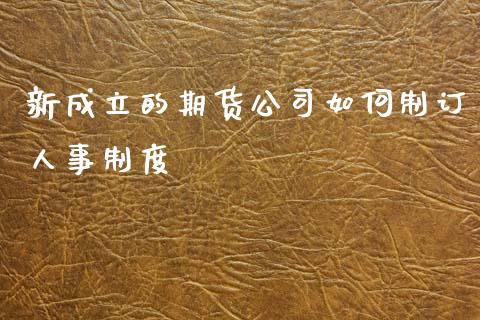 新成立的期货公司如何制订
人事制度